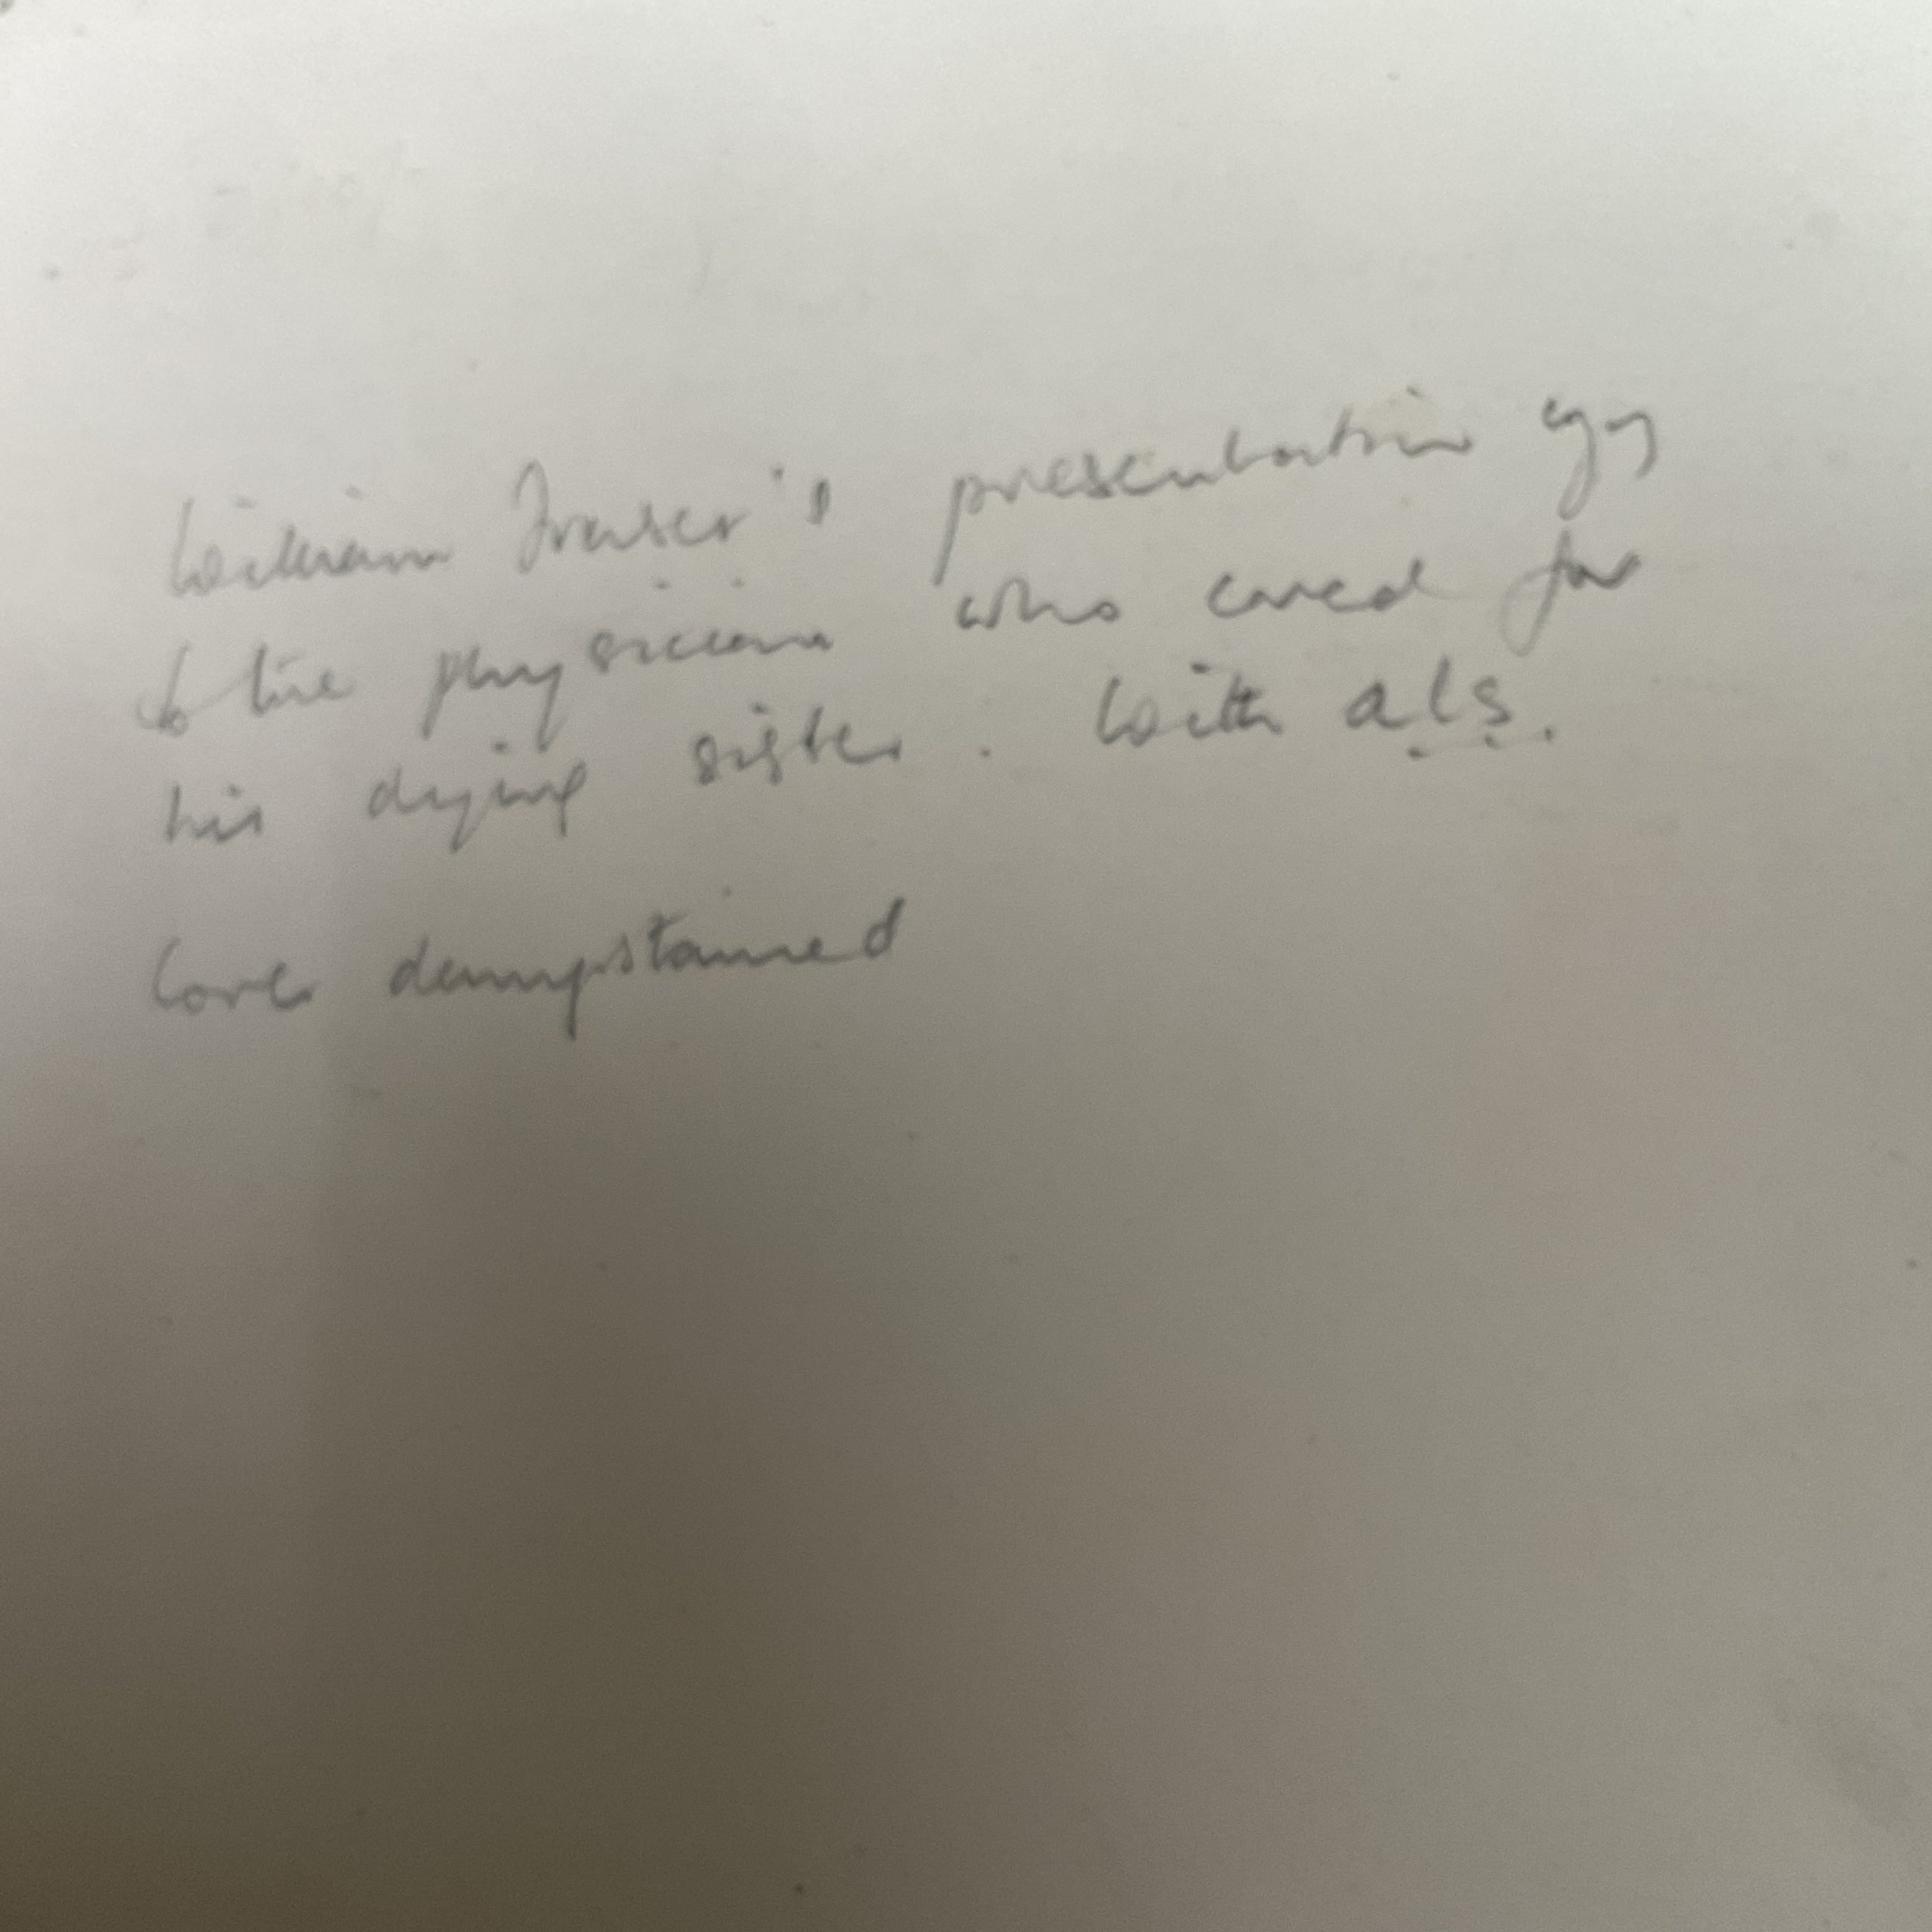 William Fraser's presentation cpy
to the physician who cared for
his dying sister. With a.l.s.
Cover dampstained